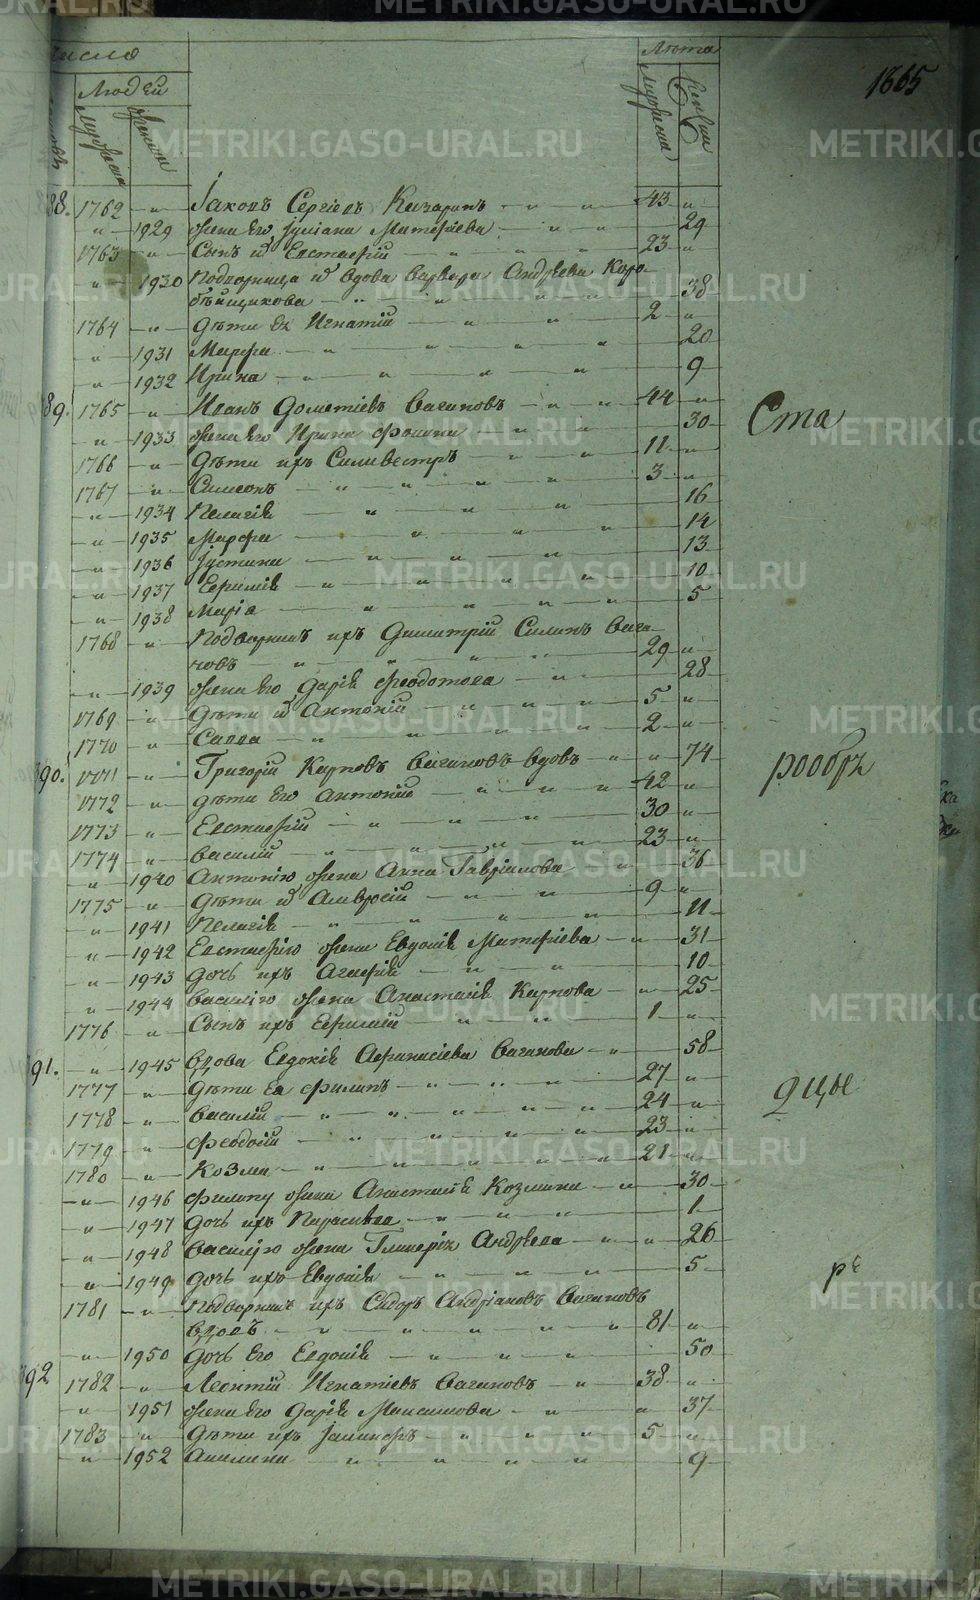 METRIKI.GASO-URAL.RU
Число
Людей
Мужеска
Женска
Лѣта
Мужески
Женски
1865
88. 1762 " Іаковъ Сергіевъ 43 "
" 1929 жена его Іуліана Матѳіева " 29
1763 " Сынъ и Евстаѳій 23 "
" 1930 Подворница и вдова Варвара Андреева Коро-
бейщикова 38
1764 " дѣти ея Игнатій 2 "
" 1931 Марѳа 20
" 1932 Ирина 9
89. 1765 " Иванъ Дометіевъ Вагановъ 44 "
" 1933 жена его Ирина Фомина 30
1766 " дѣти ихъ Силивестръ 11 "
1767 " Симеонъ 3 "
" 1934 Пелагія 16
" 1935 Марѳа 14
" 1936 Іустина 13
" 1937 Евѳимія 10
" 1938 Марія 5
1768 " Подворникъ ихъ Димитрій Силинъ Вага-
новъ 29 "
" 1939 жена его Дарія Ѳеодотова 28
1769 " дѣти и Антоній 5 "
1770 " Савва 2 "
90. 1771 " Григорій Карповъ Вагановъ вдовъ " 74
1772 " дѣти его Антоній 42 "
1773 " Евстаѳій 30 "
1774 " Василій 23 "
" 1940 Антонію жена Анна Гавріилова " 36
1775 " дѣти и Амвросій 9 "
" 1941 Пелагія 11
" 1942 Евстаѳію жена Евдокія Матѳіева " 31
" 1943 дочь ихъ Агаѳія 10
" 1944 Василію жена Анастасія Карпова " 25
1776 " Сынъ ихъ Евѳимій 1 "
91. " 1945 вдова Евдокія Аѳанасіева Ваганова 58
1777 " дѣти ея Филипъ 27 "
1778 " Василій 24 "
1779 " Ѳеодосій 23 "
1780 " Козма 21 "
" 1946 Филипу жена Анастасія Козмина 30
" 1947 дочь ихъ Параскева 1
" 1948 Василію жена Гликерія Андреева " 26
" 1949 дочь ихъ Евдокія 5
1781 " Подворникъ ихъ Сидоръ Андріановъ Вагановъ
вдовъ 81 "
" 1950 дочь его Евдокія 50
92 1782 " Леонтій Игнатіевъ Вагановъ 38 "
" 1951 жена его Дарія Максимова " 37
1783 " дѣти ихъ Іаннуарій 5 "
" 1952 Акилина 9
Ста
рообр
дцы